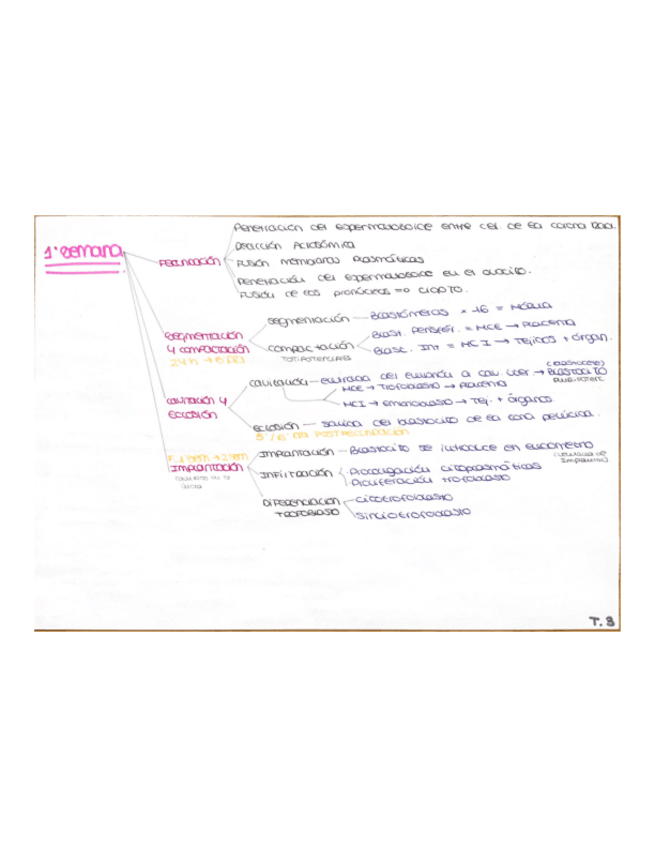 1ª semana
FECUNDACIÓN
Penetración del espermatozoide entre cel. de la corona Rad.
Reacción Acrosómica
Fusión membranas plasmáticas
Penetración del espermatozoide en el ovocito.
Fusión de los pronúcleos => CIGOTO.
Segmentación
y compactación
24h → 6 DÍA
segmentación — Blastómeras × 16 = Mórula
compactación
TOTIPOTENCIALES
Blast. Perifér. = MCE → Placenta
Blasc. Int = MCI → Tejidos + órgan.
cavitación y
Eclosión
cavitación — entrada del embrión a cav. uter. → BLASTOCITO
(blastocele)
PLURIPOTENC.
MCE → Trofoblasto → placenta
MCI → embrioblasto → Tej. + órganos
ECLOSIÓN — salida del blastocito de la zona pelúcida.
5º/6º día POSTFECUNDACIÓN
F. 1 sem → 2 sem
IMPLANTACIÓN
IMPLANTACIÓN — Blastocito se introduce en endometrio
(ventana de
Implantac.)
INFILTRACIÓN
· Prolongación citoplasmáticas
· Proliferación trofoblasto
DIFERENCIACIÓN
TROFOBLASTO
citotrofoblasto
sinciotrofoblasto
T. 3